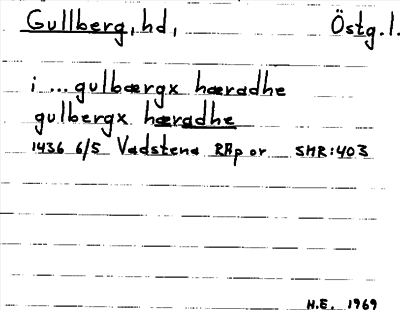 Gullberg, hd, Östg.l.
i ... gulbærgx hæradhe
gulbergx hæradhe
1436 6/5 Vadstena RAp or SMR:403
H.E. 1969